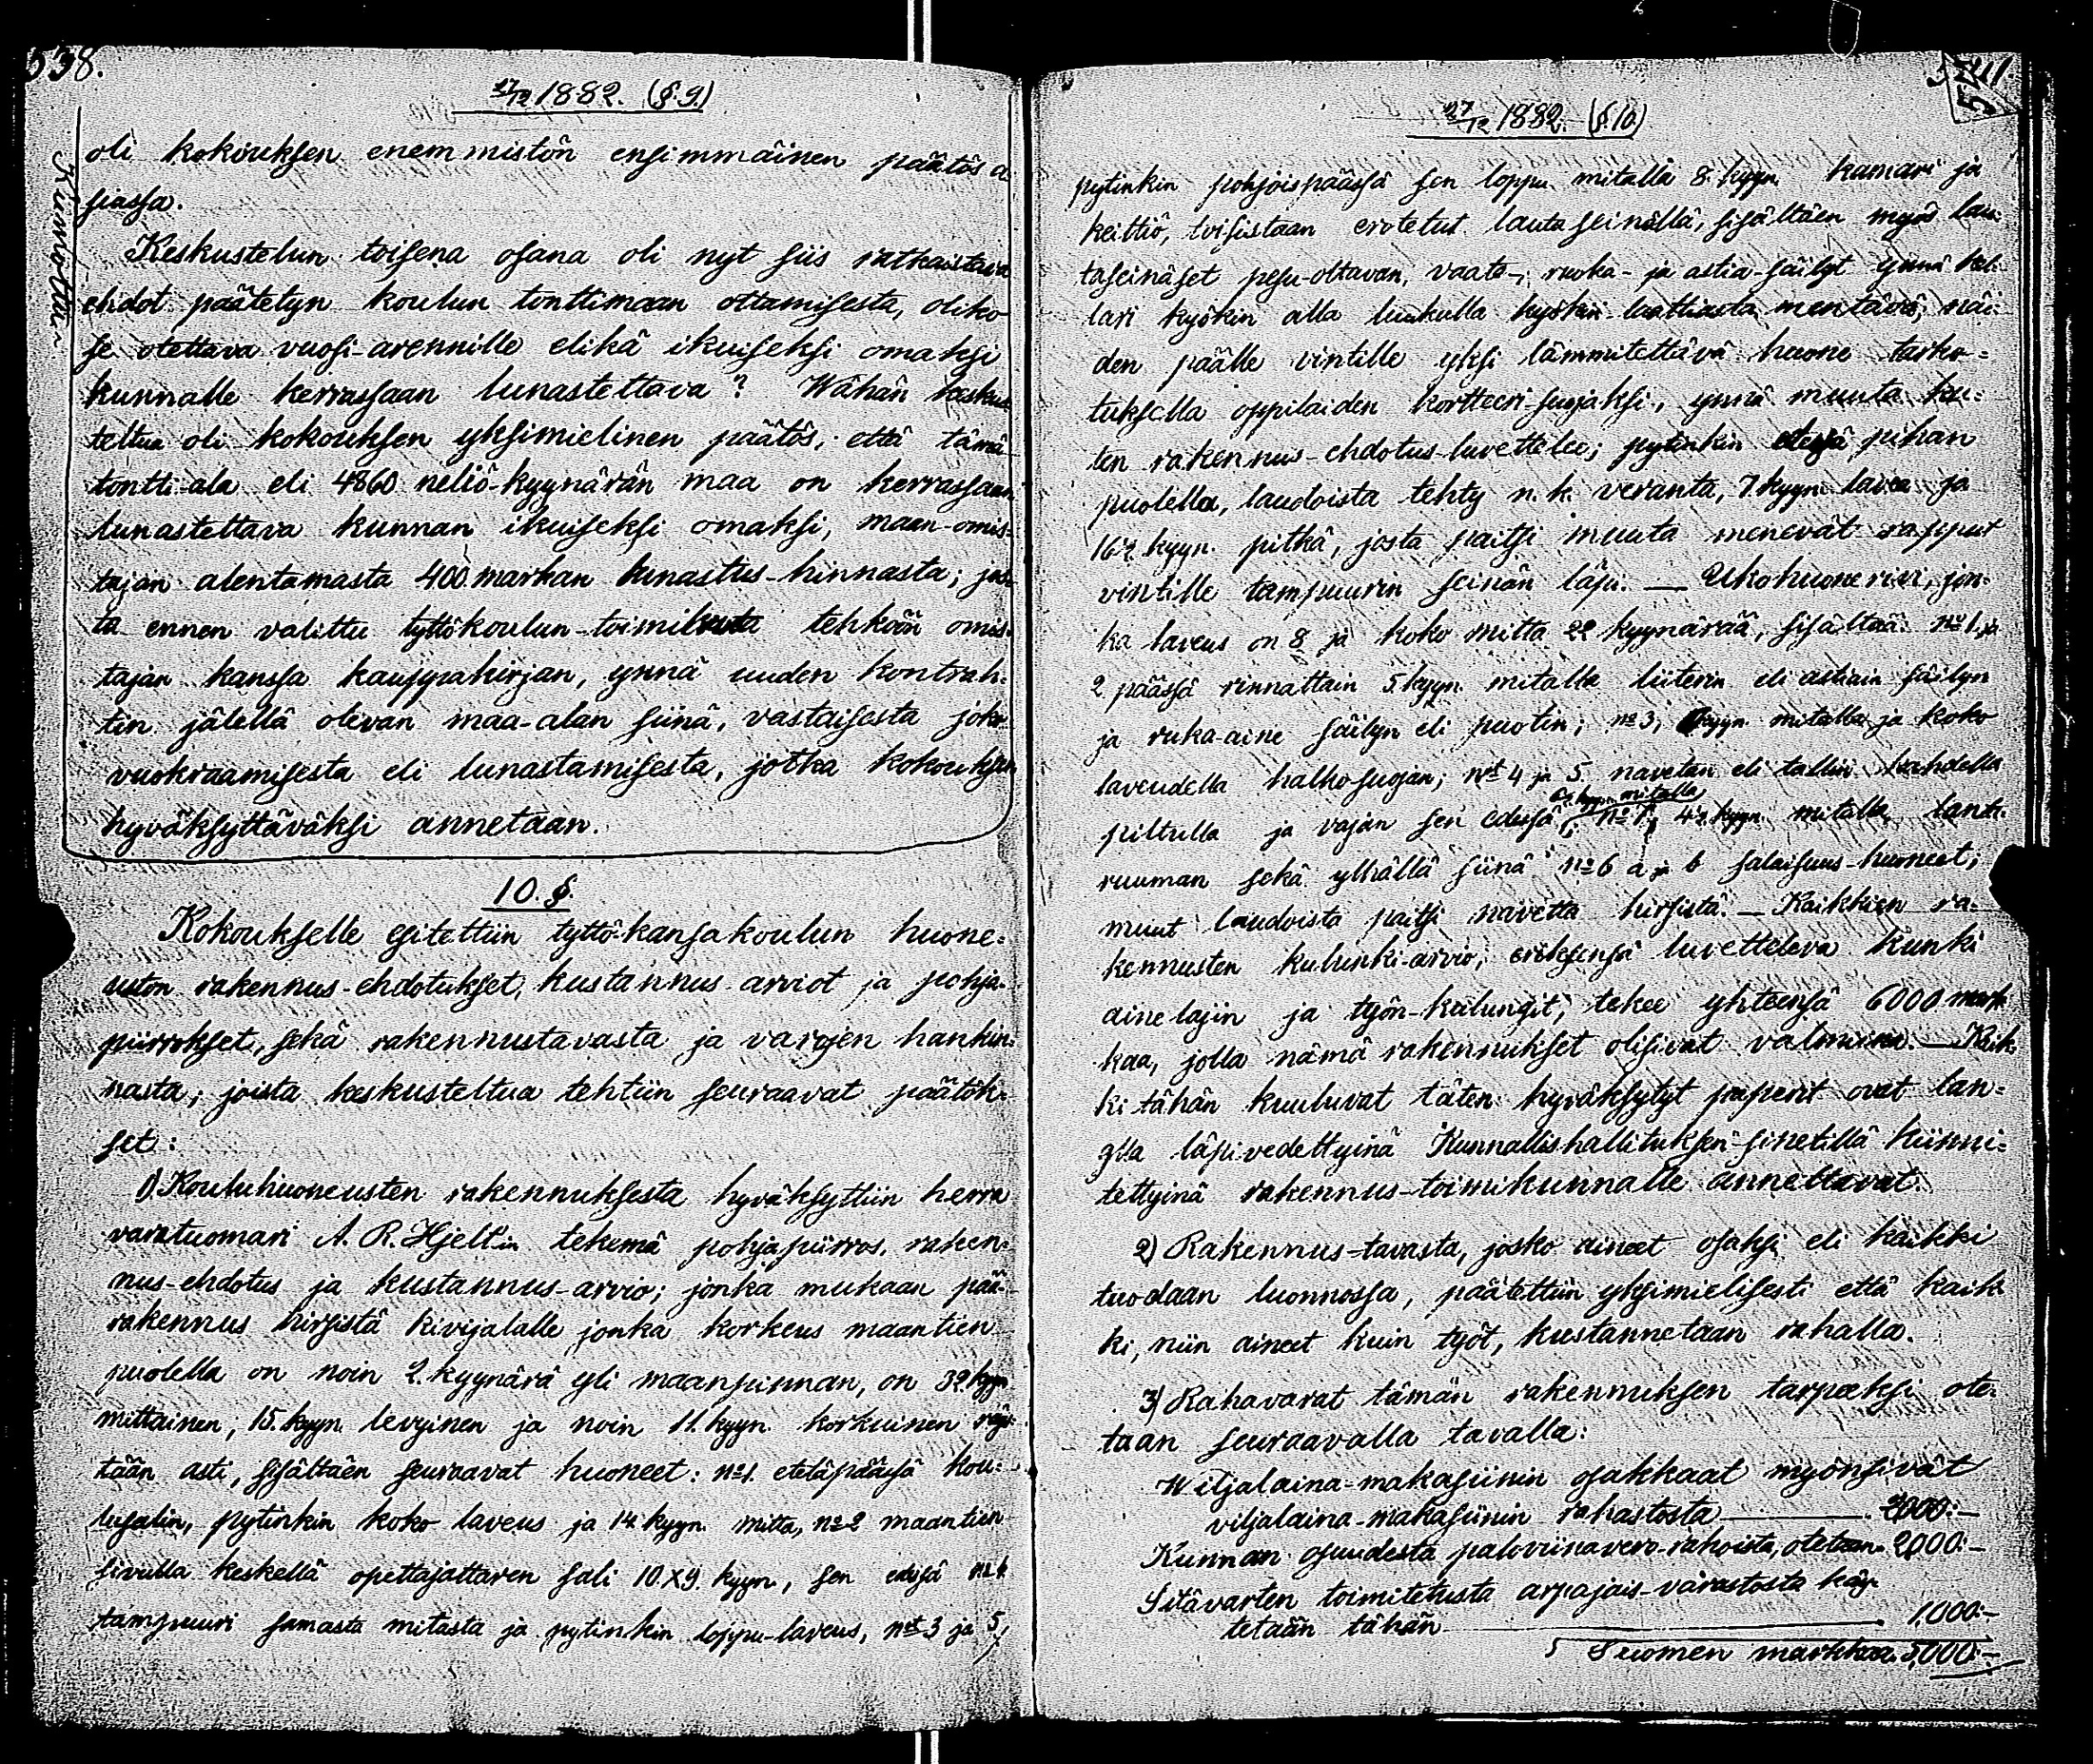 538.
27/12 1882. (§.9.)
Kumottu
oli kokouksen enemmistön ensimmäinen päätös a-
siassa.
Keskustelun toisena osana oli nyt siis ratkaistava
ehdot päätetyn koulun tonttimaan ottamisesta, oliko
se otettava vuosi-arennille elikä ikuiseksi omaksi
kunnalle kerrassaan lunastettava? Wähän keskus
teltua oli kokouksen yksimielinen päätös, että tämä
tontti-ala eli 4860 neliö-kyynärän maa on kerrassaan
lunastettava kunnan ikuiseksi omaksi, maan-omis-
tajan alentamasta 400 markan lunastus-hinnasta; jos-
ta ennen valittu tyttökoulun-toimikunta tehköön omis-
tajan kanssa kauppakirjan, ynnä uuden kontrah-
tin jälellä olevan maa-alan siinä, vastaisesta joko
vuokraamisesta eli lunastamisesta, jotka kokouksen
hyväksyttäväksi annetaan.
10. §.
Kokoukselle esitettiin tyttö-kansakoulun huone-
uston rakennus-ehdotukset, kustannus-arviot ja pohja-
piirrokset, sekä rakennustavasta ja varojen hankin-
nasta; joista keskusteltua tehtiin seuraavat päätök-
set:
1) Kouluhuoneusten rakennuksesta hyväksyttiin herra
varatuomari A. R. Hjelt'in tekemä pohjapiirros, raken-
nus-ehdotus ja kustannus-arvio; jonka mukaan pää-
rakennus hirsistä kivijalalle jonka korkeus maantien
puolella on noin 2. kyynärä yli maanpinnan, on 32. kyyn
mittainen, 15. kyyn. levyinen ja noin 11. kyyn. korkuinen räys-
tään asti, sisältäen seuraavat huoneet: no 1. etelä päässä kou-
lusalin, pytinkin koko laveus ja 14 kyyn. mitta, no 2 maantien
sivulla keskellä opettajattaren sali 10. x 9. kyyn, sen edessä no 4
tampuuri samasta mitasta ja pytinkin loppu-laveus, not 3 ja 5,
541.
27/12 1882. (§.10)
pytinkin pohjoispäässä sen loppu mitalla 8. kyyn. kamari ja
keittiö, toisistaan erotetut lauta seinällä, sisältäen myös lau-
taseinäset pesu-oltavan, vaate-, ruoka- ja astia-säilyt ynnä kel-
lari kyökin alla luukulla kyökin-laattiasta mentävä; näi-
den päälle vintille yksi lämmitettävä huone tarko-
tuksella oppilaiden kortteeri-suojaksi, ynnä muuta ku-
ten rakennus-ehdotus-luvettelee; pytinkin edessä pihan
puolella, laudoista tehty n. k. veranta, 7. kyyn. lavea ja
16½ kyyn. pitkä, josta paitsi muuta menevät rappuset
vintille tampuurin seinän läpi. — Ulkohuone rivi, jon-
ka laveus on 8 ja koko mitta 22 kyynärää, sisältää: no 1. ja
2. päässä rinnattain 5. kyyn. mitalla liiterin eli astiain säilyn
ja ruka-aine säilyn eli puotin; no 3, kyyn. mitalla ja koko
laveudella halkosuojan; not 4 ja 5 navetan eli tallin kahdella
kyyn. mitalla
piltulla ja vajan sen edessä, no 7, 4½ kyyn. mitalla lanta-
ruuman sekä ylhällä siinä no 6 a ja b salaisuus-huoneet;
muut laudoista paitsi navetta hirsistä. — Kaikkien ra-
kennusten kulunki-arvio, eriksensä luvetteleva kunki
aine lajin ja työn-kulungit, tekee yhteensä 6000 mark-
kaa, jolla nämä rakennukset olisivat valmiina. — Kaik-
ki tähän kuuluvat täten hyväksytyt paperit ovat lan-
galla läpivedettyinä Kunnallishallituksen sinetillä kiinni-
tettyinä rakennus-toimikunnalle annettavat.
2) Rakennus-tavasta, josko aineet osaksi eli kaikki
tuodaan luonnossa, päätettiin yksimielisesti että kaik-
ki, niin aineet kuin työt, kustannetaan rahalla.
3) Rahavarat tämän rakennuksen tarpeeksi ote-
taan seuraavalla tavalla:
Wiljalaina-makasiinin osakkaat myönsivät
viljalaina-makasiinin rahastosta — 2000:—
Kunnan osuudesta paloviinavero-rahoista, otetaan 2000:—
Sitävarten toimitetusta arpajais-varastosta käy-
tetään tähän — 1,000:—
Suomen markkaa 5,000:—